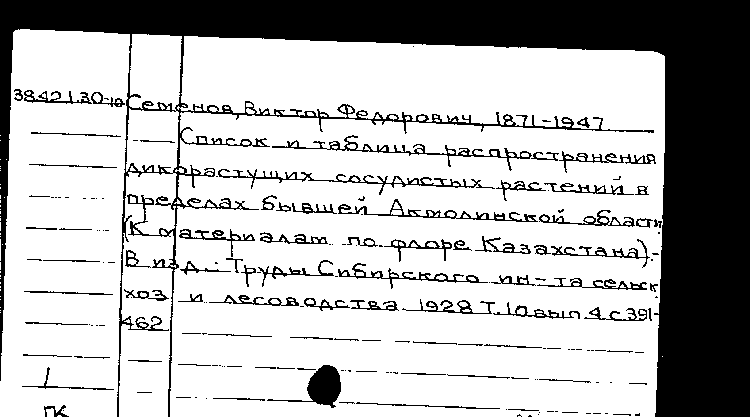 3842130-10 Семенов, Виктор Федорович, 1871-1947
Список и таблица распространения
дикорастущих сосудистых растений в
пределах бывшей Акмолинской области
(К материалам по флоре Казахстана).-
В изд.: Труды Сибирского ин-та сельск
хоз и лесоводства 1928 Т.10 вып 4 с 391-
462
1
ГК